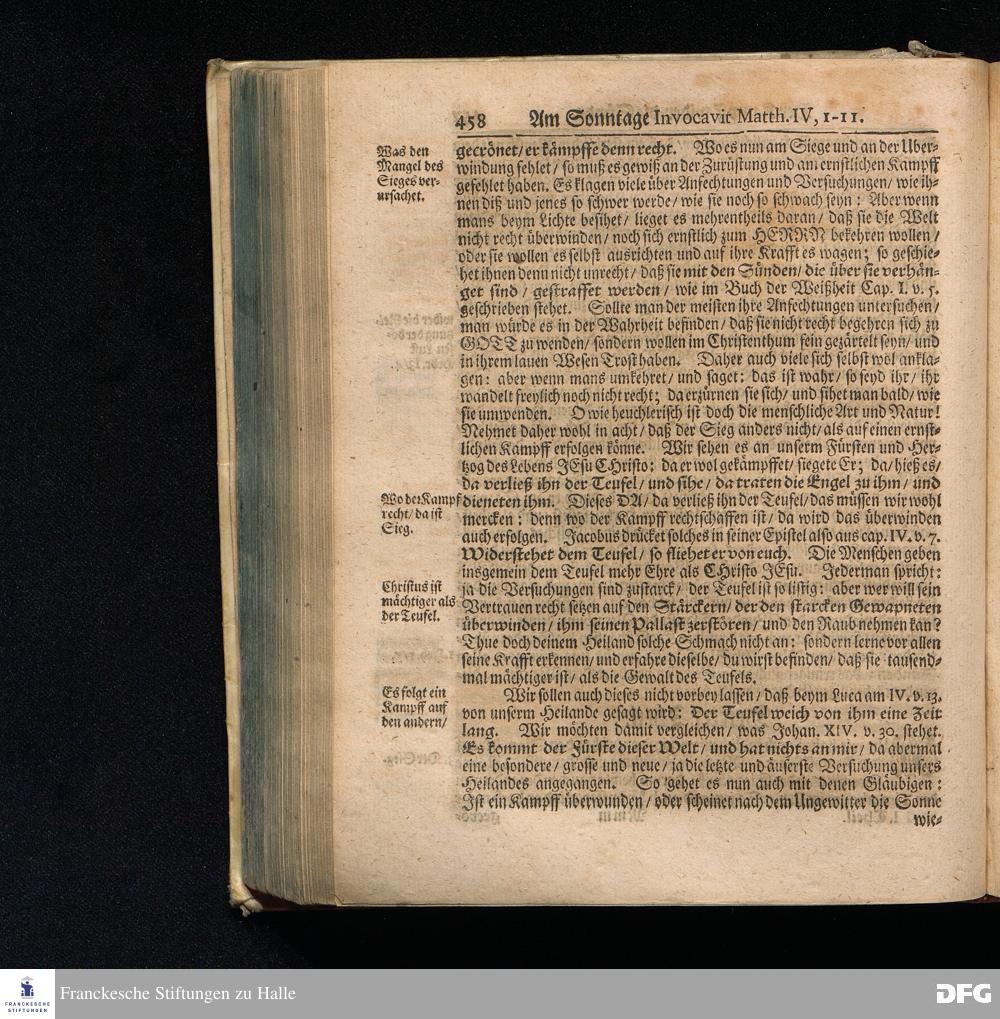 458 Am Sonntage Invocavit Matth. IV, 1-11.
Was den
Mangel des
Sieges ver-
ursachet.
gecrönet/ er kämpffe denn recht. Wo es nun am Siege und an der Uber-
windung fehlet/ so muß es gewiß an der Zurüstung und am ernstlichen Kampff
gefehlet haben. Es klagen viele über Anfechtungen und Versuchungen/ wie ih-
nen diß und jenes so schwer werde/ wie sie noch so schwach seyn: Aber wenn
mans beym Lichte besihet/ lieget es mehrentheils daran/ daß sie die Welt
nicht recht überwinden/ noch sich ernstlich zum HERRN bekehren wollen/
oder sie wollen es selbst ausrichten und auf ihre Krafft es wagen; so geschie-
het ihnen denn nicht unrecht/ daß sie mit den Sünden/ die über sie verhän-
get sind/ gestraffet werden/ wie im Buch der Weißheit Cap. I. v. 5.
geschrieben stehet. Sollte man der meisten ihre Anfechtungen untersuchen/
man würde es in der Wahrheit befinden/ daß sie nicht recht begehren sich zu
GOTT zu wenden/ sondern wollen im Christenthum fein gezärtelt seyn/ und
in ihrem lauen Wesen Trost haben. Daher auch viele sich selbst wol ankla-
gen: aber wenn mans umkehret/ und saget: das ist wahr/ so seyd ihr/ ihr
wandelt freylich noch nicht recht; da erzürnen sie sich/ und sihet man bald/ wie
sie umwenden. O wie heuchlerisch ist doch die menschliche Art und Natur!
Nehmet daher wohl in acht/ daß der Sieg anders nicht/ als auf einen ernst-
lichen Kampff erfolgen könne. Wir sehen es an unserm Fürsten und Her-
tzog des Lebens JEsu CHristo: da er wol gekämpffet/ siegete Er; da/ hieß es/
da verließ ihn der Teufel/ und sihe/ da traten die Engel zu ihm/ und
Wo der Kampf
recht/ da ist
Sieg.
dieneten ihm. Dieses DA/ da verließ ihn der Teufel/ das müssen wir wohl
mercken: denn wo der Kampff rechtschaffen ist/ da wird das überwinden
auch erfolgen. Jacobus drücket solches in seiner Epistel also aus cap. IV. v. 7.
Widerstehet dem Teufel/ so fliehet er von euch. Die Menschen geben
insgemein dem Teufel mehr Ehre als CHristo JEsu. Jederman spricht:
Christus ist
mächtiger als
der Teufel.
ja die Versuchungen sind zu starck/ der Teufel ist so listig: aber wer will sein
Vertrauen recht setzen auf den Stärckern/ der den starcken Gewapneten
überwinden/ ihm seinen Pallast zerstören/ und den Raub nehmen kan?
Thue doch deinem Heiland solche Schmach nicht an: sondern lerne vor allen
seine Krafft erkennen/ und erfahre dieselbe/ du wirst befinden/ daß sie tausend-
mal mächtiger ist/ als die Gewalt des Teufels.
Es folgt ein
Kampff auf
den andern/
Wir sollen auch dieses nicht vorbey lassen/ daß beym Luca am IV. v. 13.
von unserm Heilande gesagt wird: Der Teufel weich von ihm eine Zeit
lang. Wir möchten damit vergleichen/ was Johan. XIV. v. 30. stehet.
Es kommt der Fürste dieser Welt/ und hat nichts an mir/ da abermal
eine besondere/ grosse und neue/ ja die letzte und äuserste Versuchung unsers
Heilandes angegangen. So gehet es nun auch mit denen Gläubigen:
Ist ein Kampff überwunden/ oder scheinet nach dem Ungewitter die Sonne
wie-
FRANCKESCHE
STIFTUNGEN
Franckesche Stiftungen zu Halle
DFG